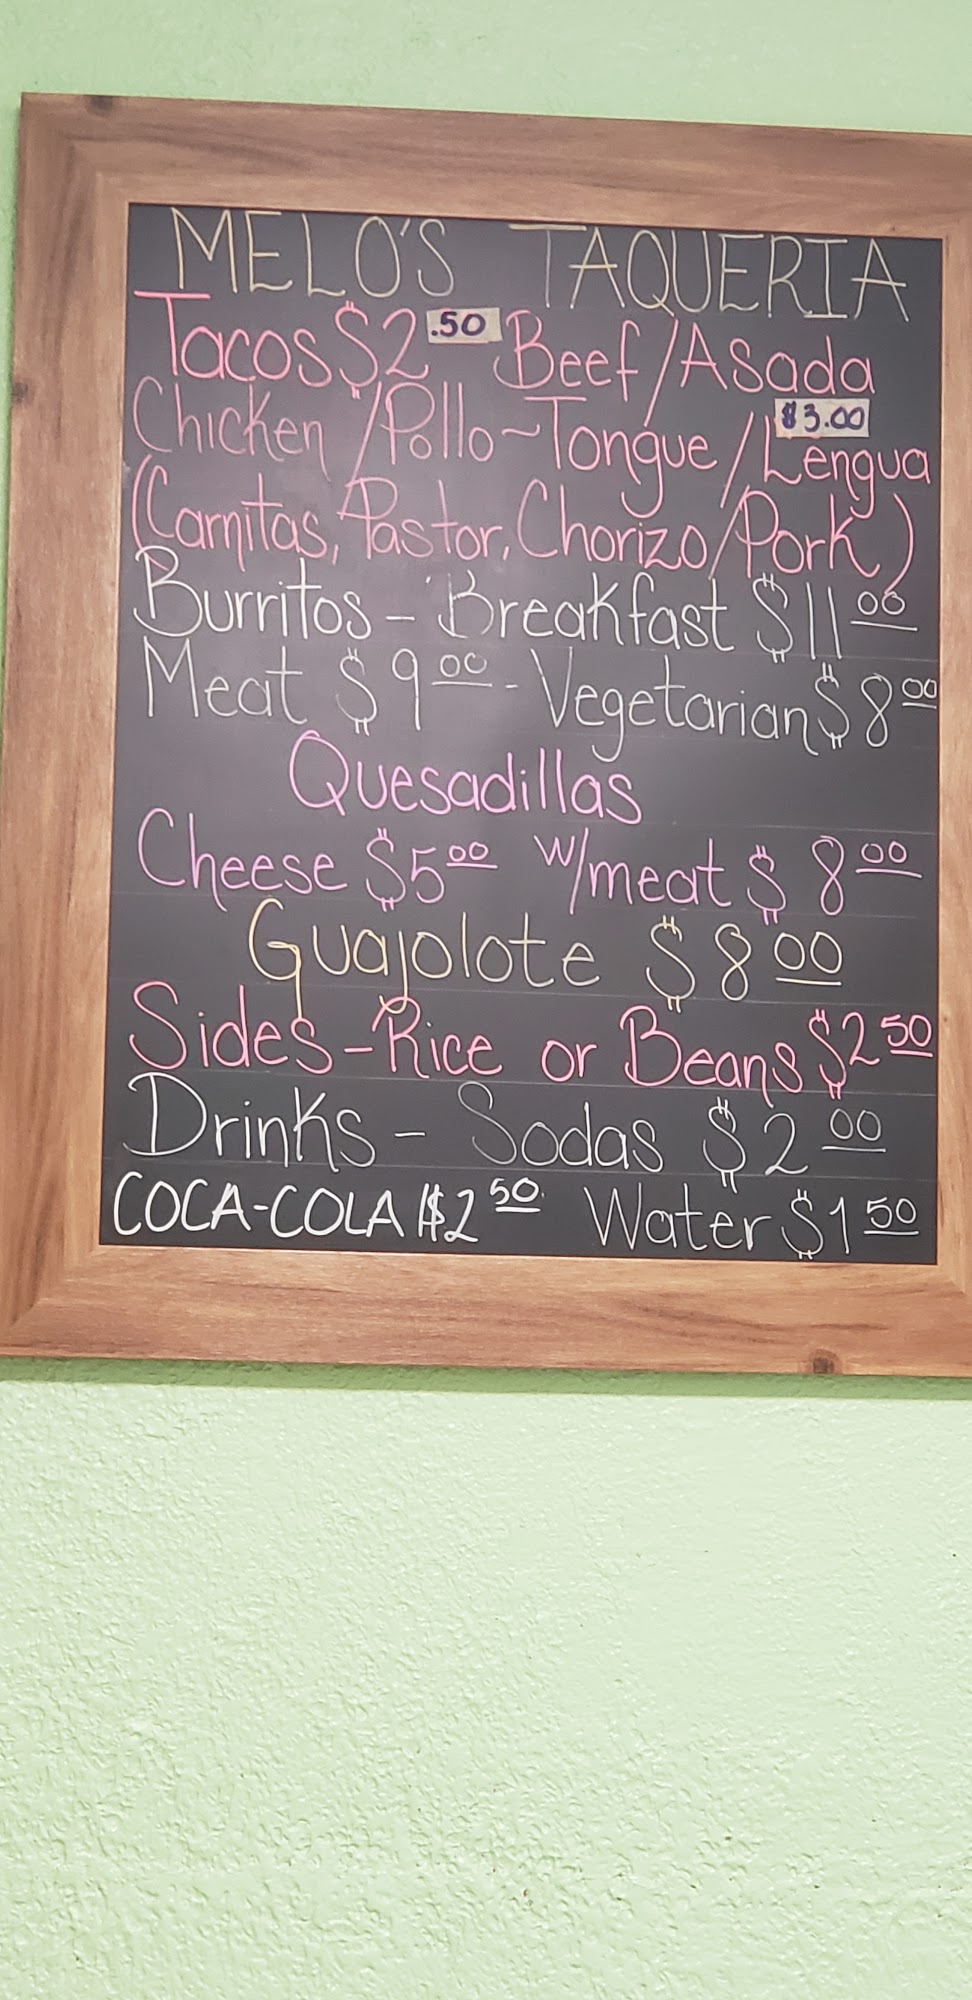 MELO'S TAQUERIA
Tacos $2.50 Beef/Asada
Chicken/Pollo~Tongue/Lengua $3.00
(Carnitas, Pastor, Chorizo/Pork)
Burritos - Breakfast $11.00
Meat $9.00 - Vegetarian $8.00
Quesadillas
Cheese $5.00 w/meat $8.00
Guajolote $8.00
Sides - Rice or Beans $2.50
Drinks - Sodas $2.00
COCA-COLA $2.50 Water $1.50